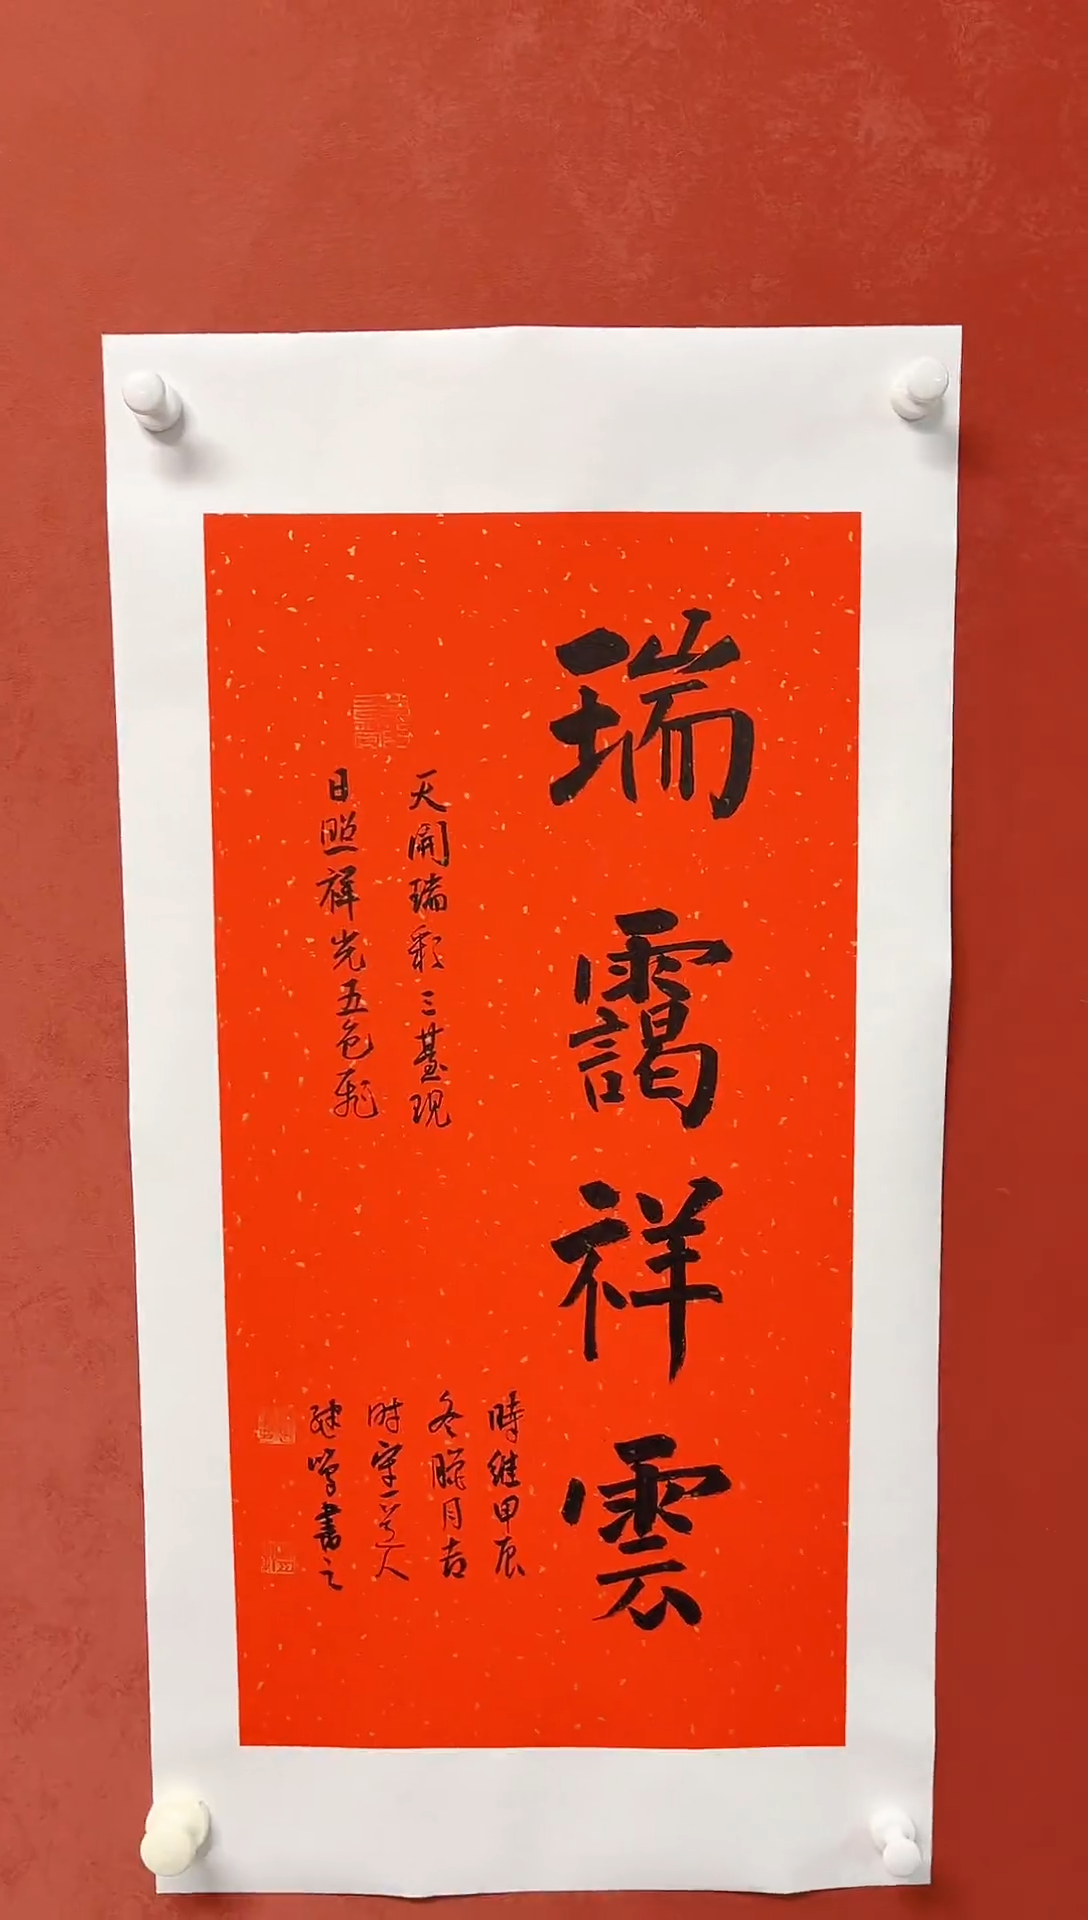 瑞靄祥雲
天開瑞彩三臺現
日照祥光五色飛
時維甲辰
冬臘月吉
時守一茗人
書之